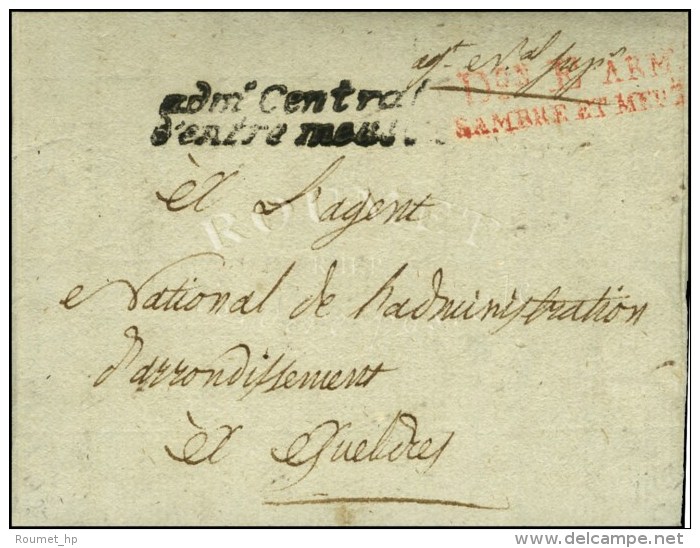 admon Central
d'entre meuse
Don E ARM.
SAMBRE ET MEUSE
à L'agent
National de l'administration
d'arrondissement
à Gueldres
ROUMET
Roumet_hp
www.delcampe.net